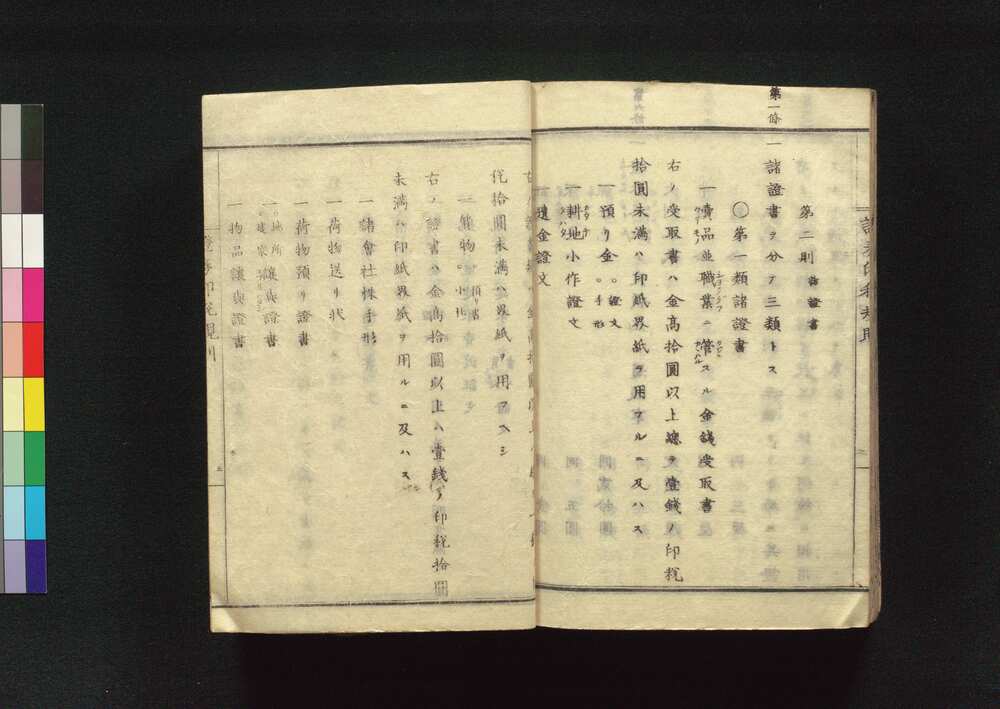 第二則 諸證書
第一條 一諸證書ヲ分テ三類トス
〇第一類諸證書
一賣品並職業ニ管スル金錢受取書
右ノ受取書ハ金高拾圓以上總テ壹錢ノ印稅
拾圓未滿ハ印紙界紙ヲ用フルニ及ハス
預リ金。證文。手形
耕地小作證文
遺金證文
稅拾圓未滿ハ界紙ヲ用フヘシ
右ノ證書ハ金高拾圓以上ハ壹錢ノ印稅拾圓
未滿ハ印紙界紙ヲ用ルニ及ハス
一諸會社株手形
一荷物送リ狀
一荷物預リ證書
一地所 建家 讓與證書
一物品讓與證書